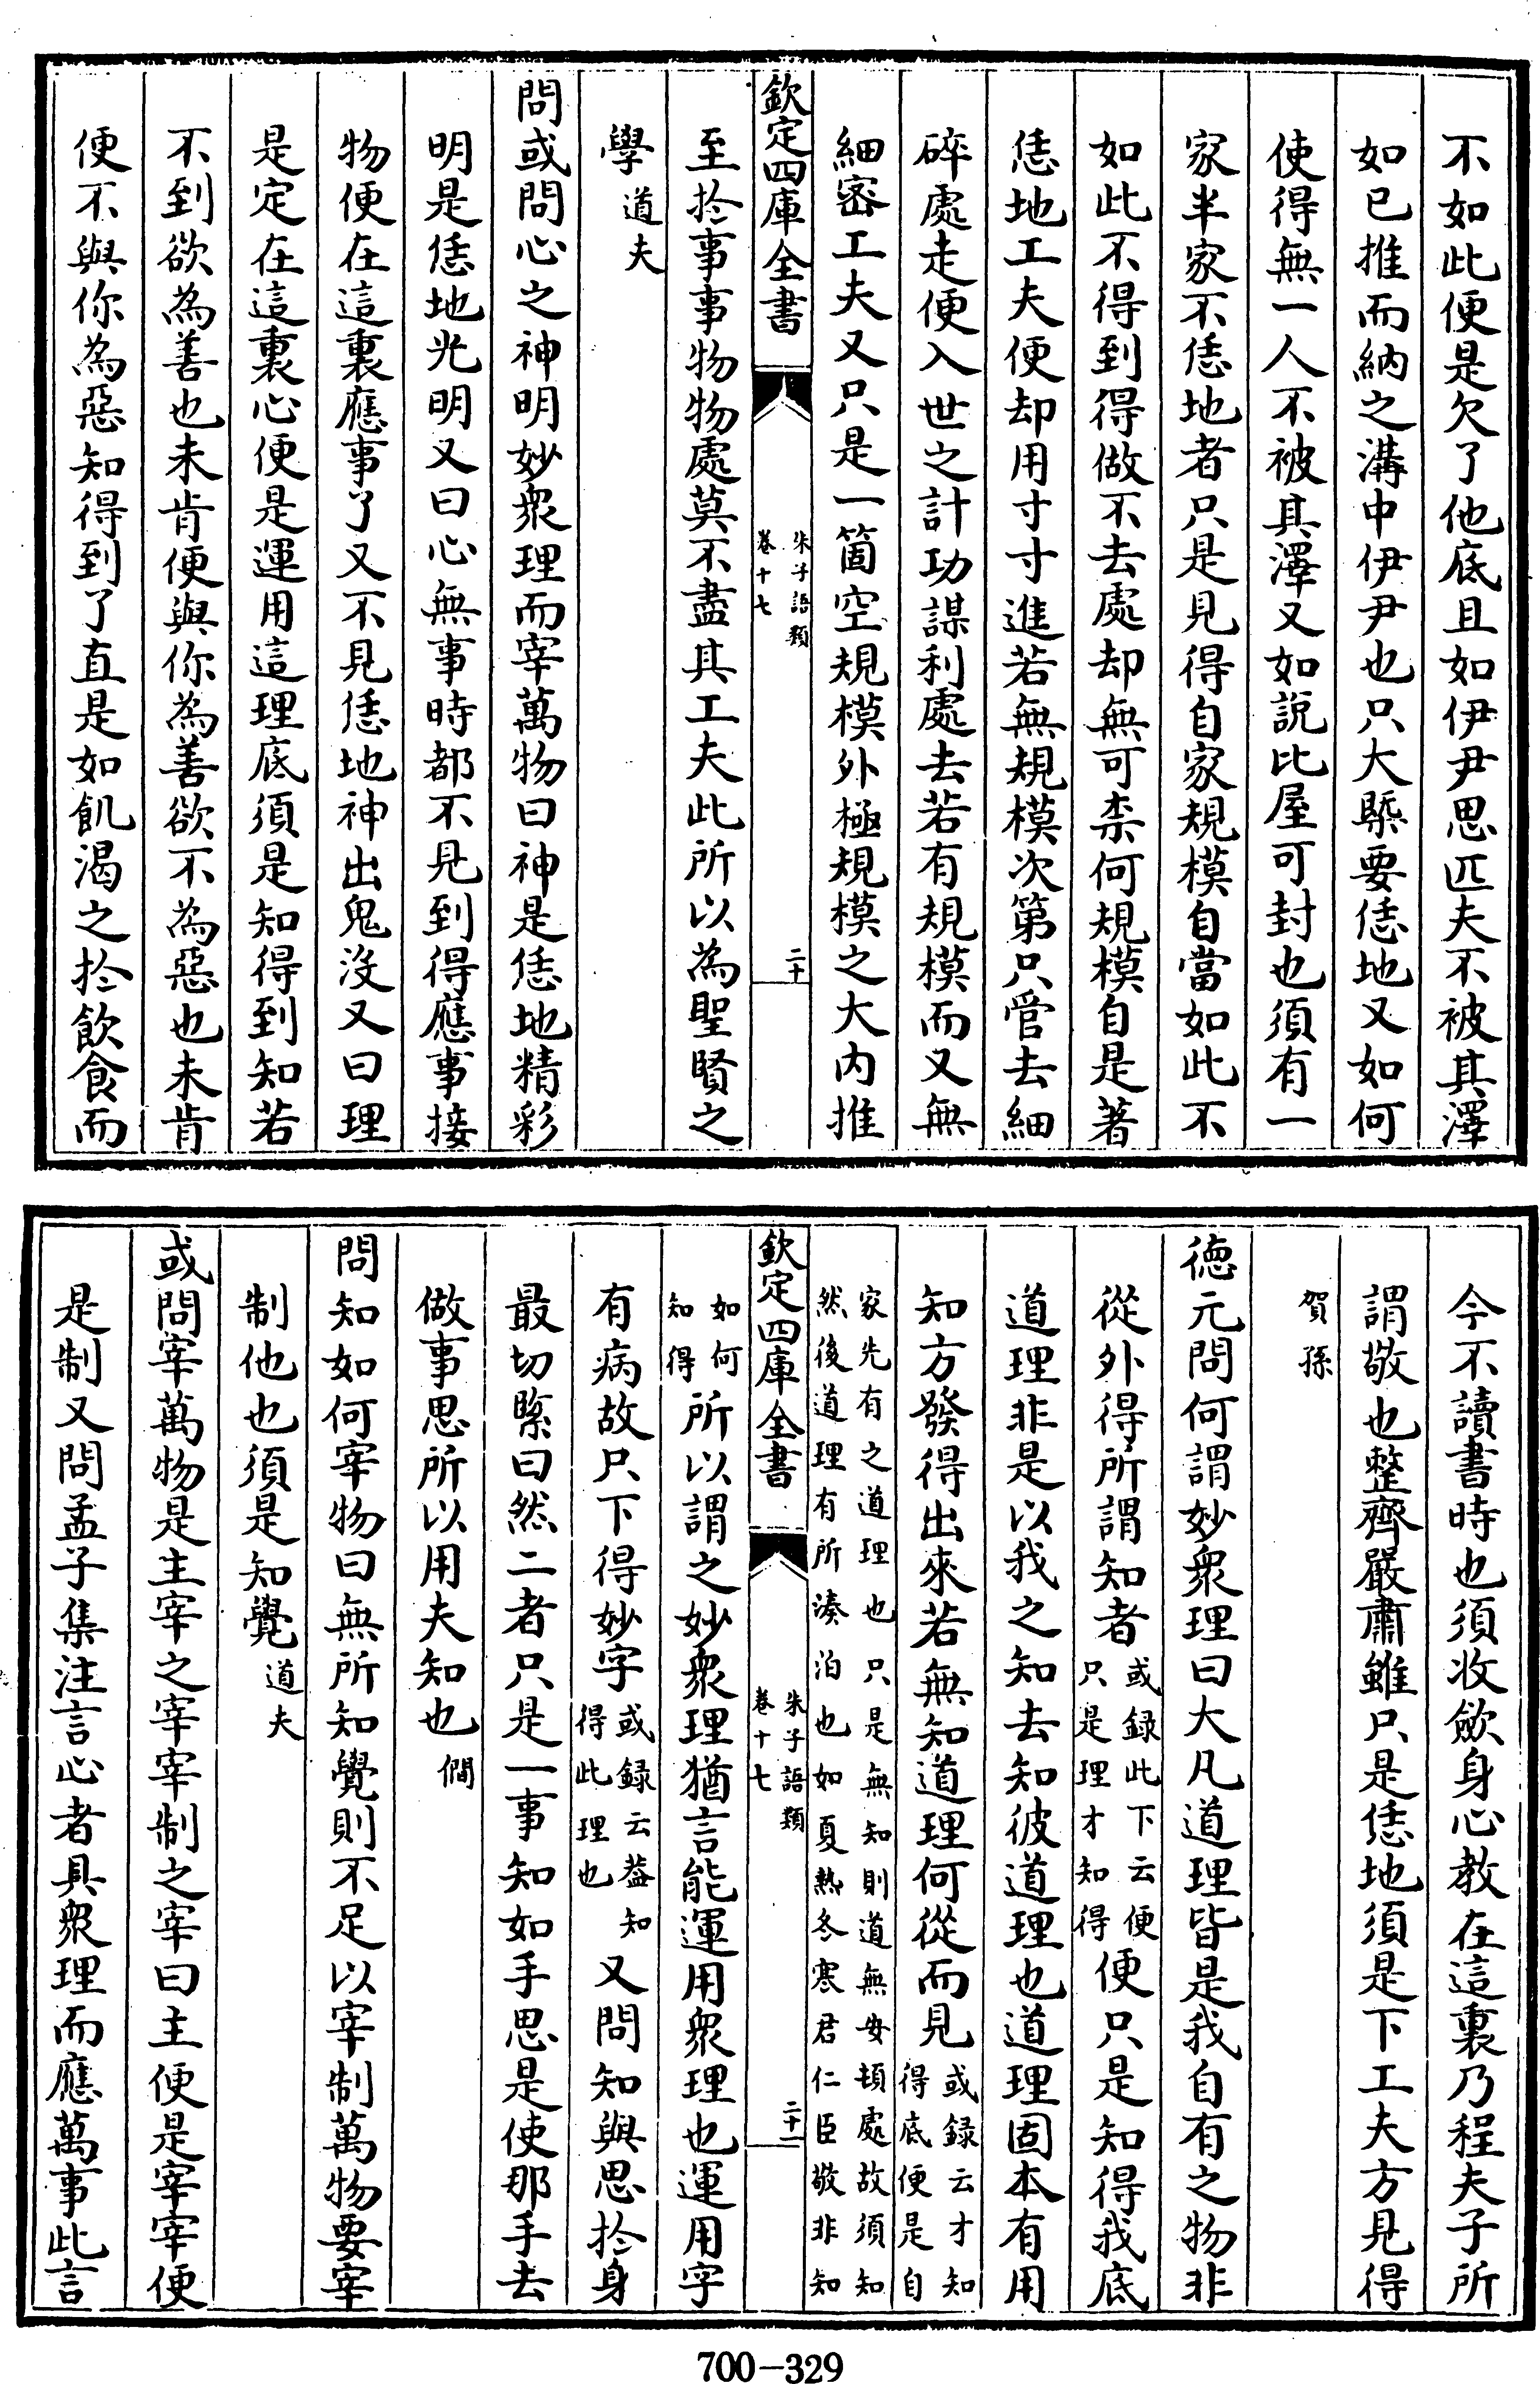 不如此便是欠了他底且如伊尹思匹夫不被其澤
如已推而納之溝中伊尹也只大槩要恁地又如何
使得無一人不被其澤又如說比屋可封也須有一
家半家不恁地者只是見得自家規模自當如此不
如此不得到得做不去處却無可柰何規模自是著
恁地工夫便却用寸寸進若無規模次第只管去細
碎處走便入世之計功謀利處去若有規模而又無
細密工夫又只是一箇空規模外極規模之大内推
欽定四庫全書
朱子語類
卷十七
二十
至於事事物物處莫不盡其工夫此所以為聖賢之
學道夫
問或問心之神明妙衆理而宰萬物曰神是恁地精彩
明是恁地光明又曰心無事時都不見到得應事接
物便在這裏應事了又不見恁地神出鬼没又曰理
是定在這裏心便是運用這理底須是知得到知若
不到欲為善也未肯便與你為善欲不為惡也未肯
便不與你為惡知得到了直是如飢渴之於飲食而
今不讀書時也須收斂身心教在這裏乃程夫子所
謂敬也整齊嚴肅雖只是恁地須是下工夫方見得
賀孫
德元問何謂妙衆理曰大凡道理皆是我自有之物非
從外得所謂知者或録此下云便只是理才知得便只是知得我底
道理非是以我之知去知彼道理也道理固本有用
知方發得出來若無知道理何從而見或録云才知得底便是自
家先有之道理也只是無知則道無安頓處故須知
然後道理有所湊泊也如夏熱冬寒君仁臣敬非知
欽定四庫全書
朱子語類
卷十七
二十一
如何知得所以謂之妙衆理猶言能運用衆理也運用字
有病故只下得妙字或録云葢知得此理也又問知與思於身
最切緊曰然二者只是一事知如手思是使那手去
做事思所以用夫知也僩
問知如何宰物曰無所知覺則不足以宰制萬物要宰
制他也須是知覺道夫
或問宰萬物是主宰之宰宰制之宰曰主便是宰宰便
是制又問孟子集注言心者具衆理而應萬事此言
700-329